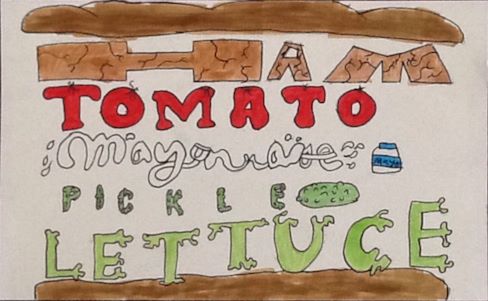 HAM
TOMATO
Mayonnaise
Mayo
PICKLE
LETTUCE